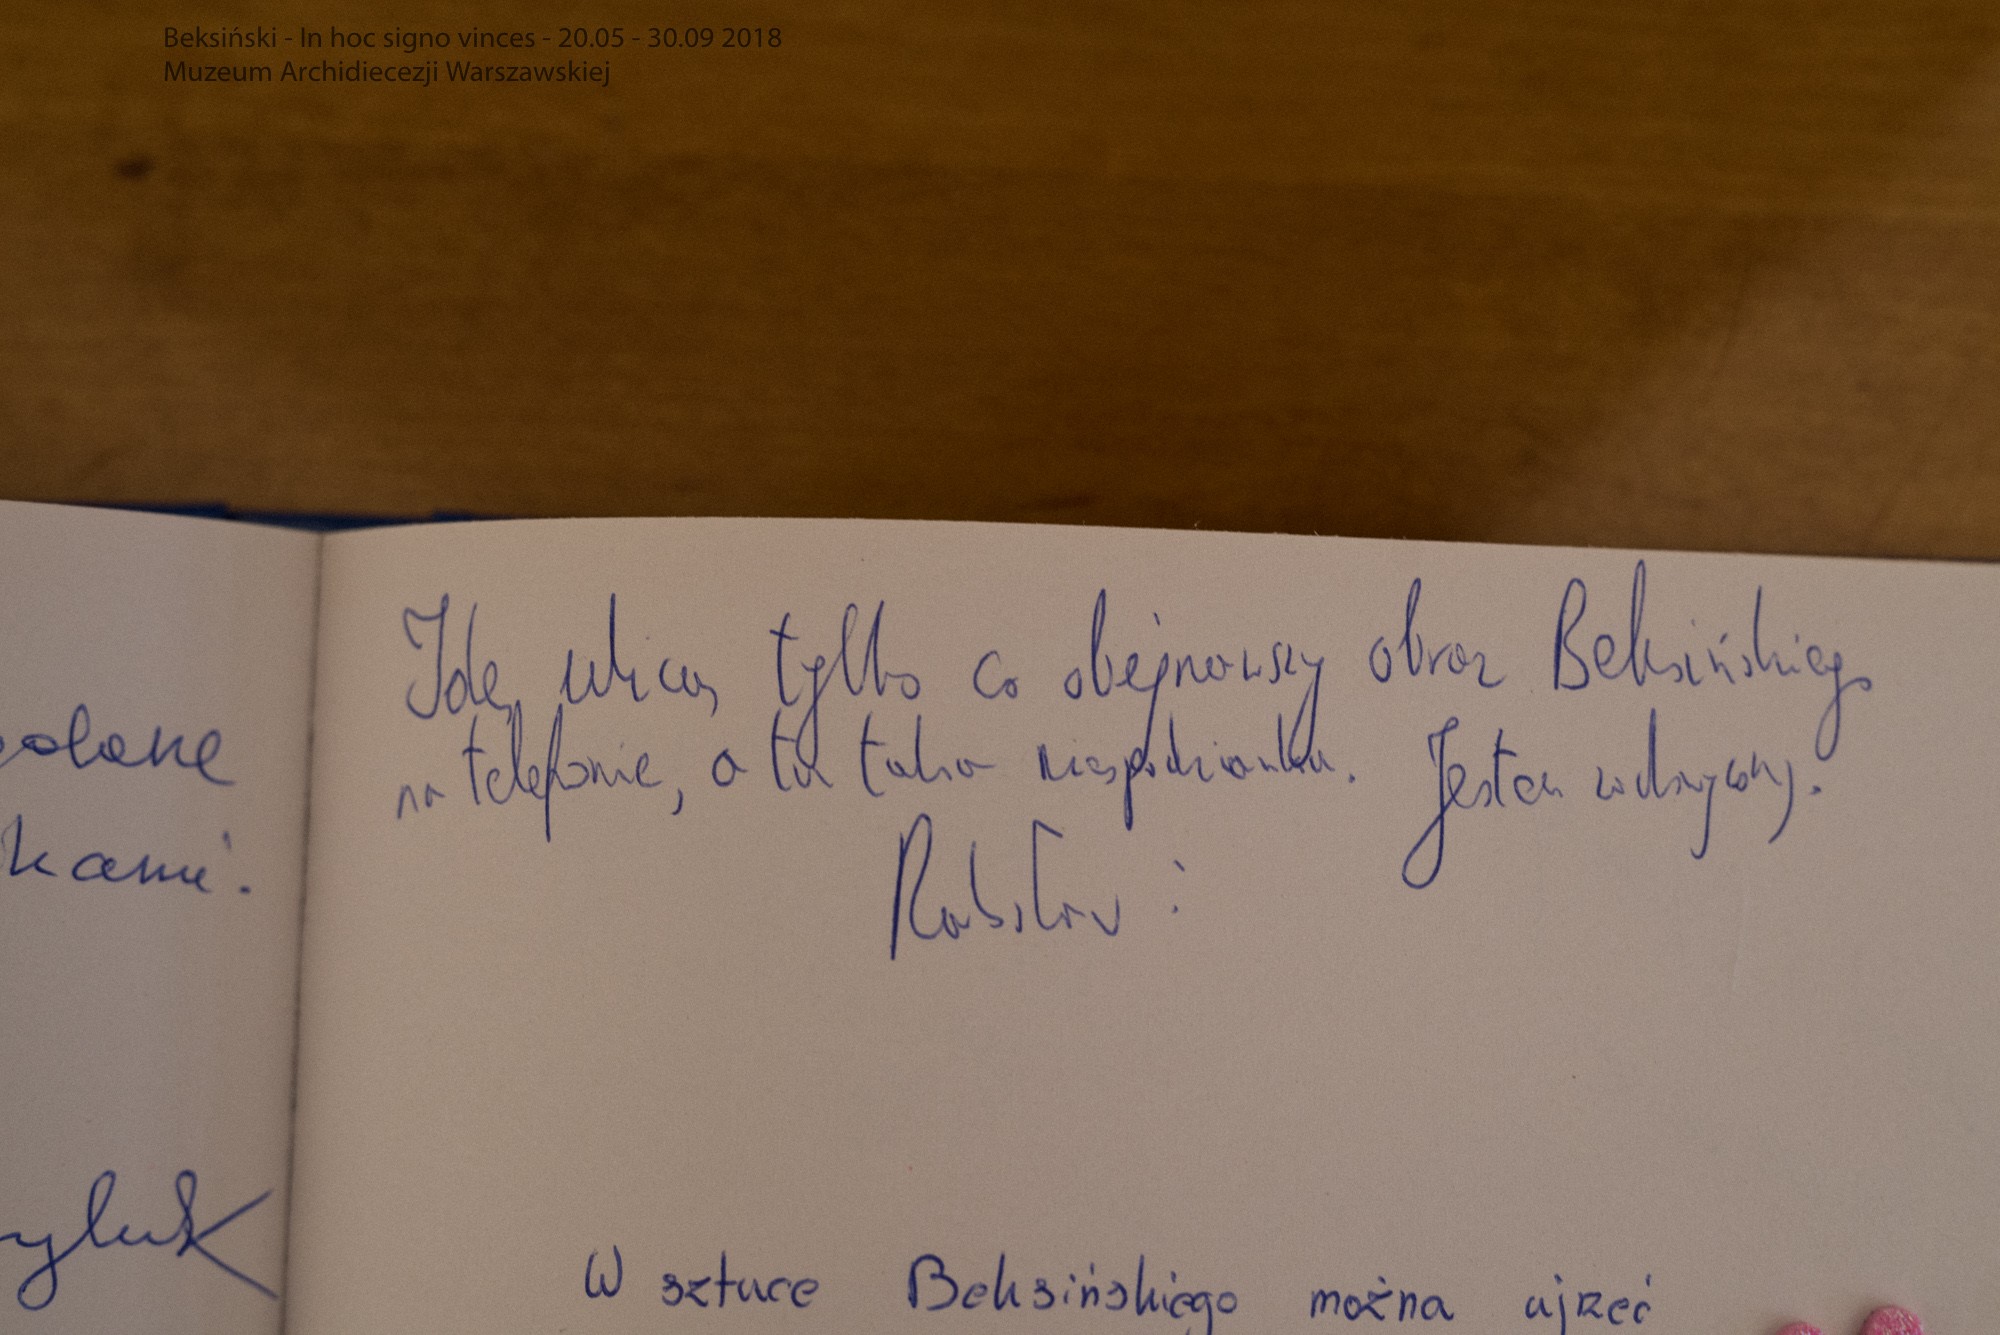 Beksiński - In hoc signo vinces - 20.05 - 30.09 2018
Muzeum Archidiecezji Warszawskiej
kami.
Idę ulicą tylko co obejrzawszy obraz Beksińskiego
na telefonie, a tu taka niespodzianka. Jestem
W sztuce Beksińskiego można ujrzeć